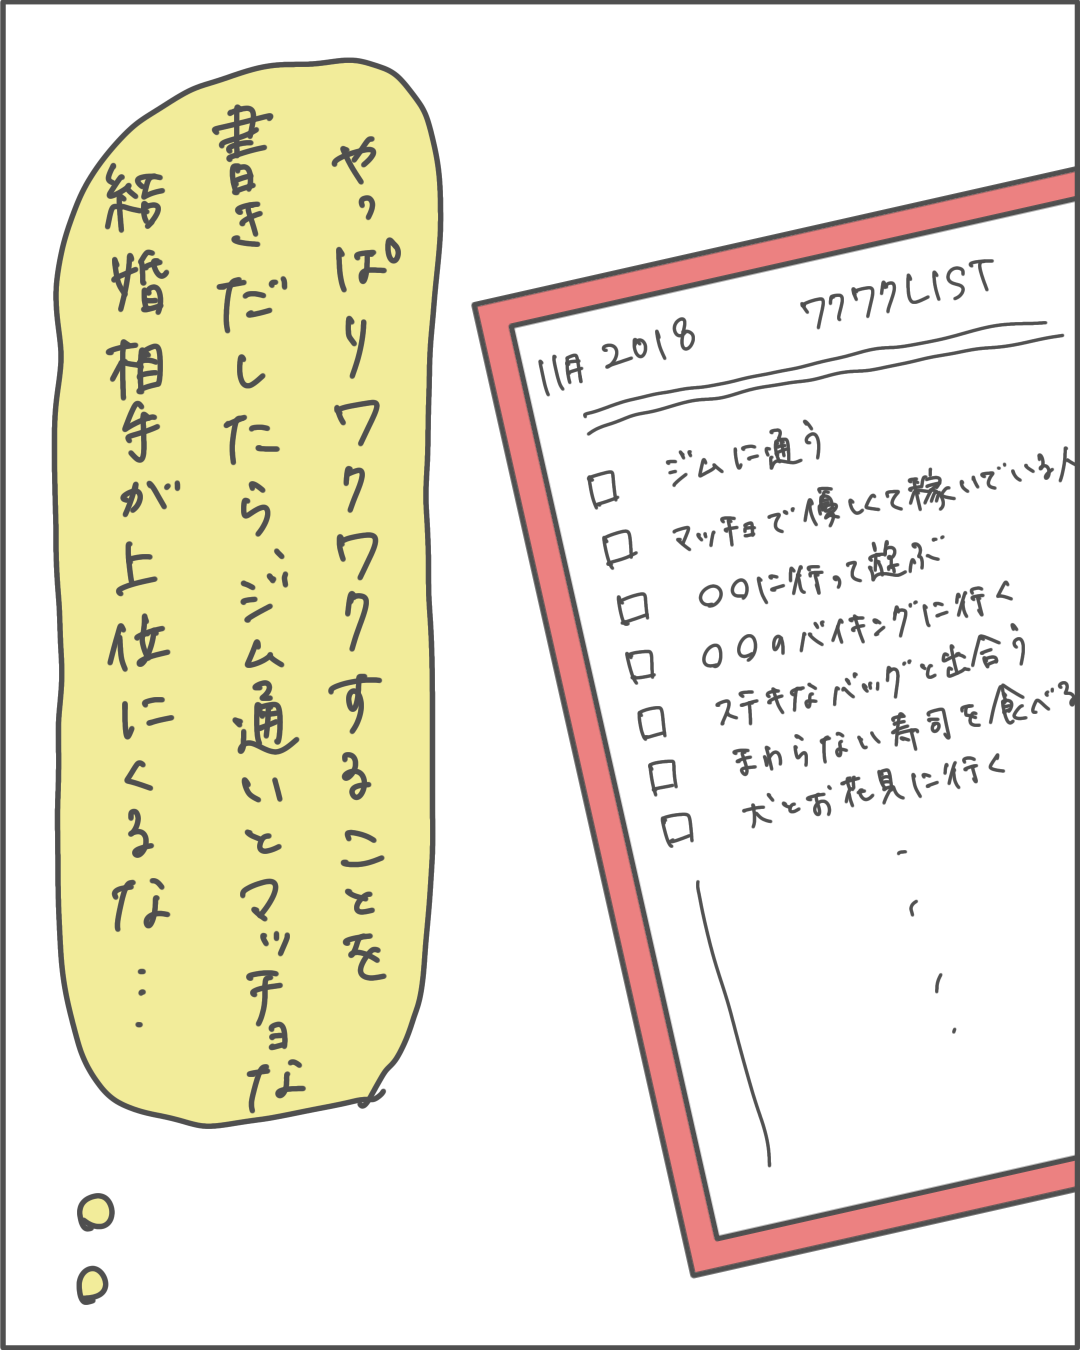 やっぱりワクワクすることを
書きだしたら、ジム通いとマッチョな
結婚相手が上位にくるな…
11月 2018 ワクワクLIST
ジムに通う
マッチョで優しくて稼いでいる人
〇〇に行って遊ぶ
〇〇のバイキングに行く
ステキなバッグと出合う
まわらない寿司を食べる
犬とお花見に行く